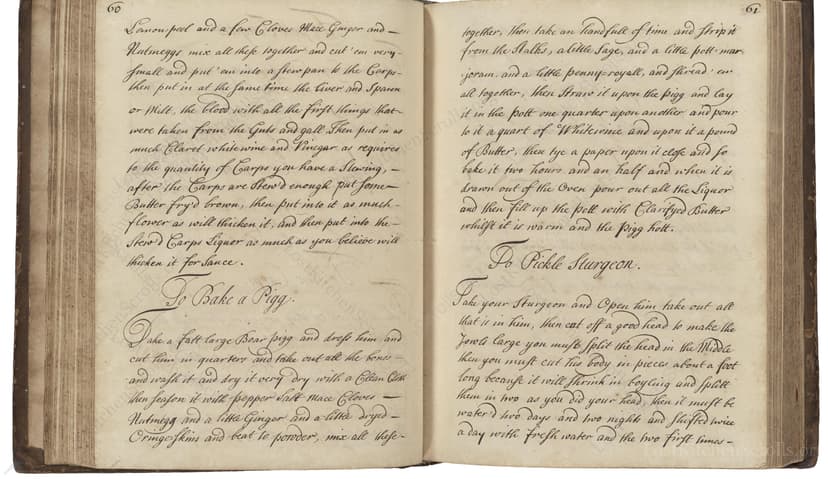 60
Lemon peel and a few Cloves Mace Ginger and
Nutmeggs mix all these together and cut 'em very
small and put 'em into a stew pan to the Carps
then put in at the same time the liver and Spawn
or Milt, the blood with all the first things that
were taken from the Guts and gall. Then put in as
much Claret white wine and Vinegar as requires
to the quantity of Carps you have a Stewing,
after the Carps are Stew'd enough put some
Butter fry'd brown, then put into it as much
flower as will thicken it, and then put into the
Stew'd Carps Liquor as much as you believe will
thicken it for Sauce.
To Bake a Pigg.
Take a fatt large Boar pigg and dress him and
cut him in quarters and take out all the bones
and wash it and dry it very dry with a Clean Cloth
then season it with pepper Salt Mace Cloves
Nutmegg and a little Ginger and a little dryed
Oringe Skins and beat to powder, mix all these
61
together, then take an handfull of time and strip it
from the Stalks, a little Sage, and a little pott mar
joram, and a little penny-royall, and shread 'em
all together, then Straw it upon the pigg and lay
it in the pott one quarter upon another and pour
to it a quart of White wine and upon it a pound
of Butter, then tye a paper upon it close and so
bake it two hours and an half and when it is
drawn out of the Oven pour out all the Liquor
and then fill up the pott with Clarifyed Butter
whilst it is warm and the pigg hott.
To Pickle Sturgeon.
Take your Sturgeon and Open him take out all
that is in him, then cut off a good head to make the
Jowls large you must split the head in the Middle
then you must cut his body in pieces about a foot
long because it will shrink in boyling and splitt
them in two as you did your head, then it must be
water'd two days and two nights and shifted twice
a day with fresh water and the two first times